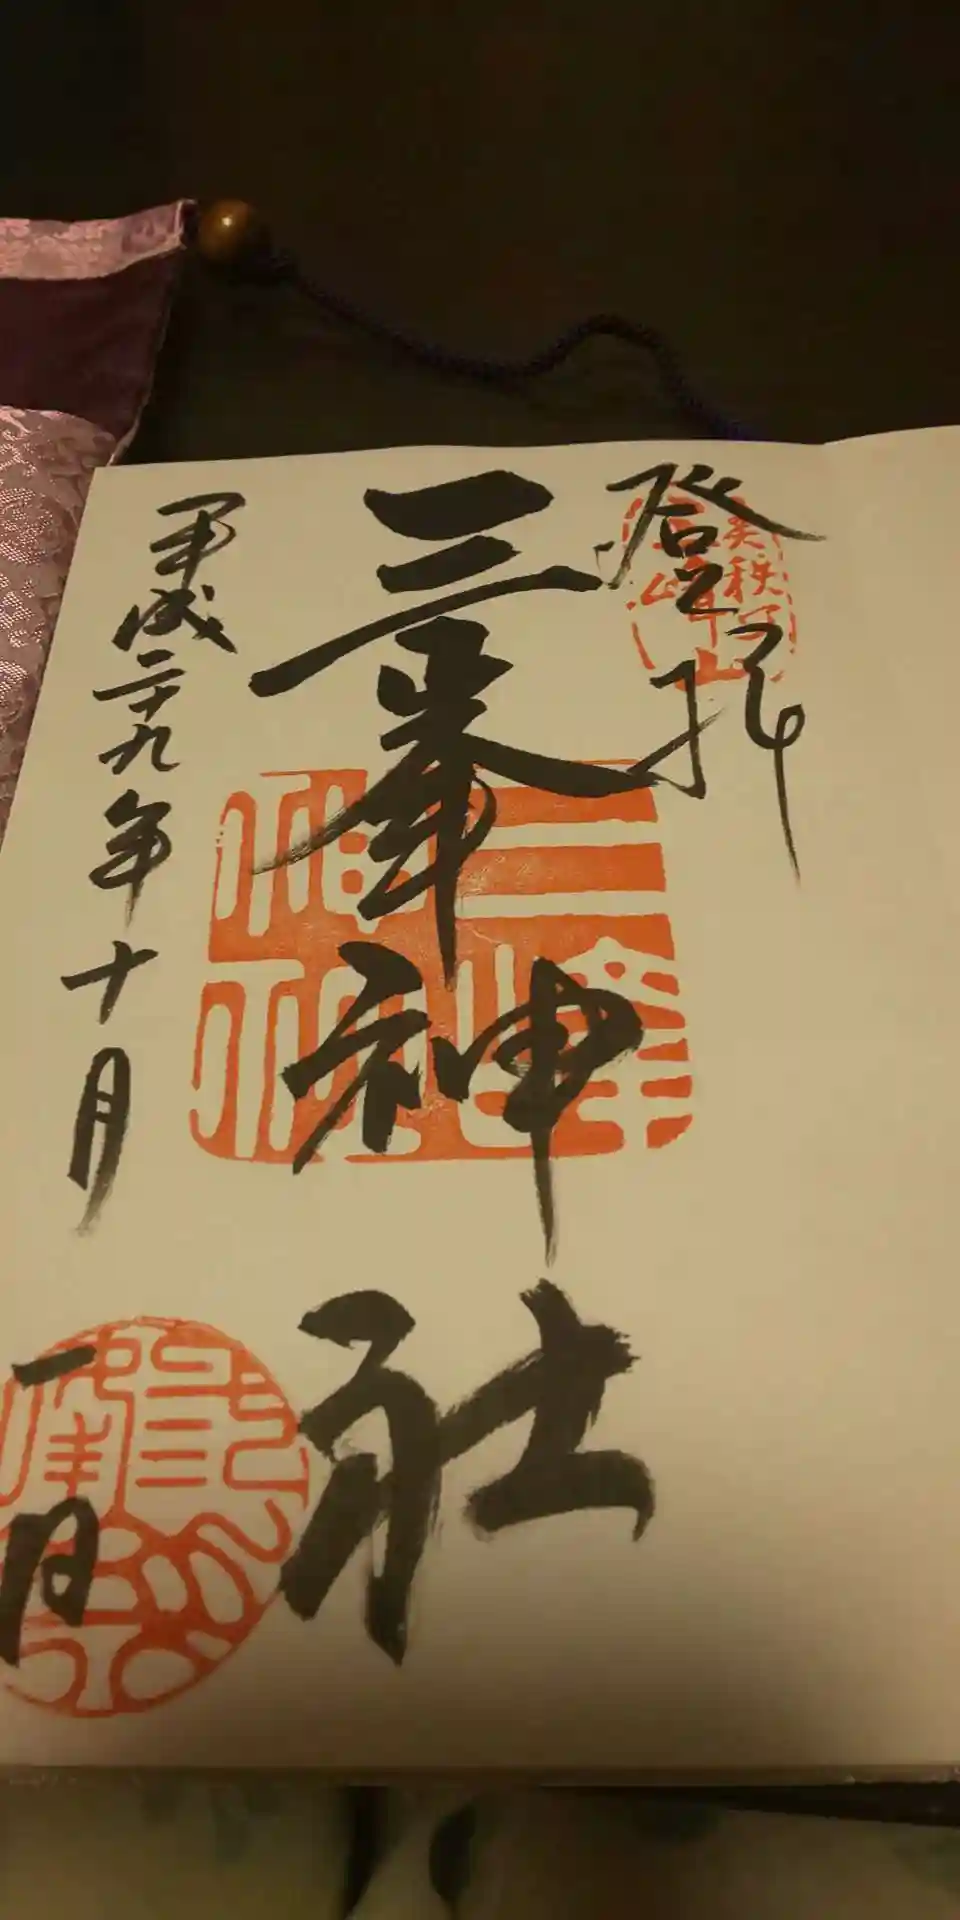 登拝
奥秩父
三峰山
三峯神社
三峰
神社
平成二十九年十月一日